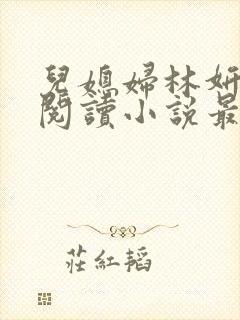 兒媳婦林妍
閱讀小説最
莊紅韜